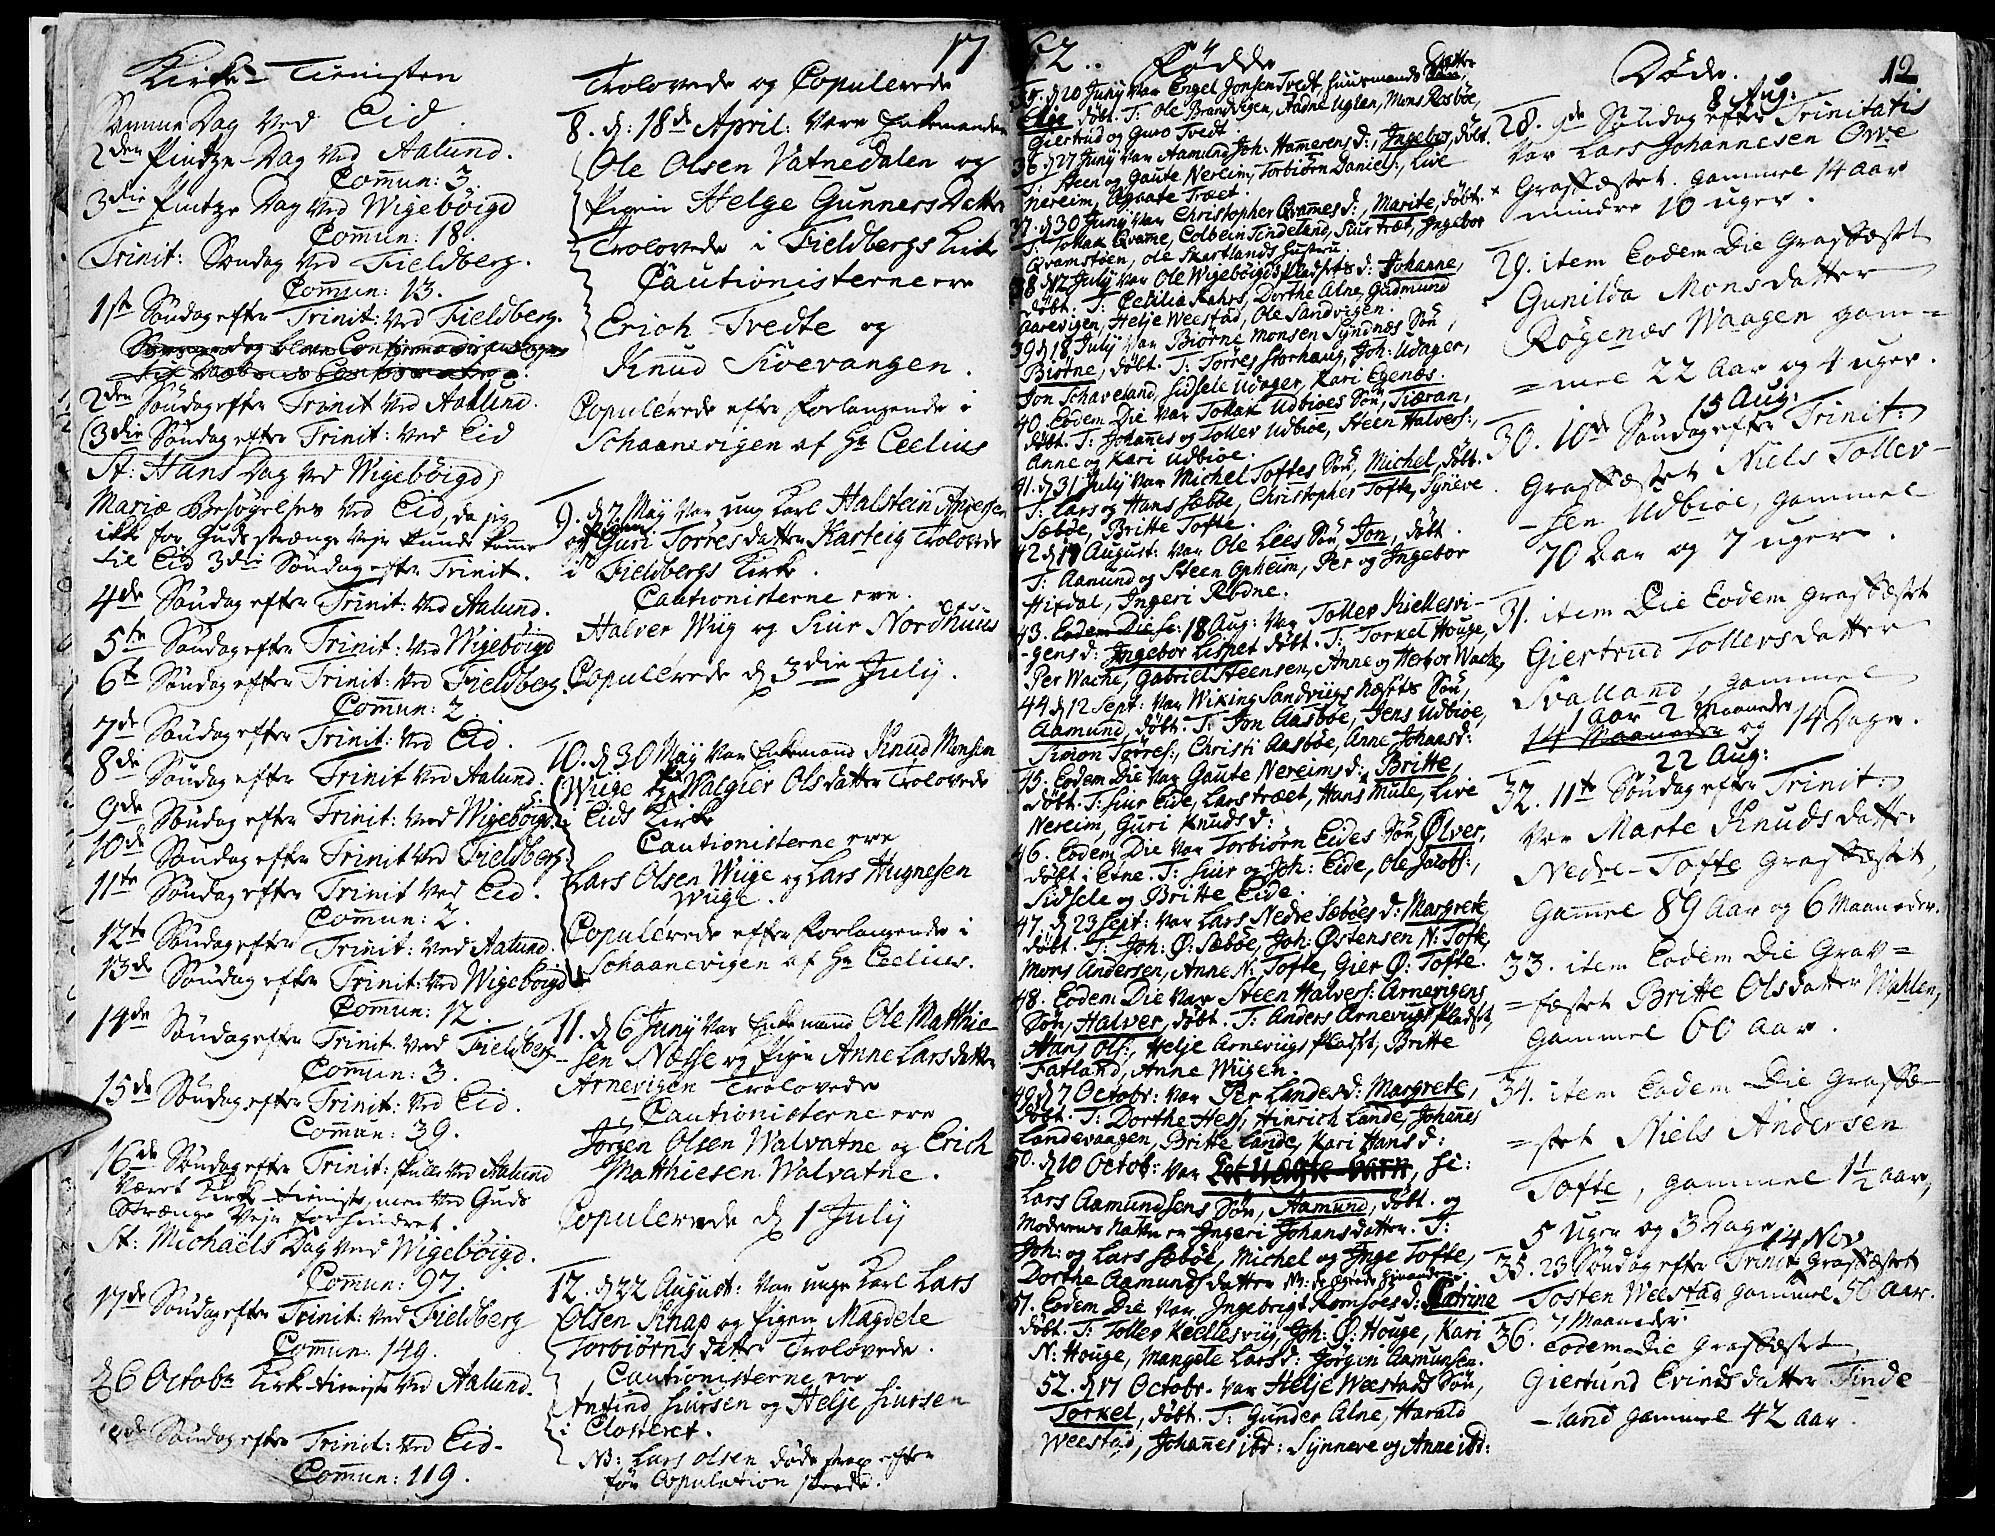 Kirke-Tienisten
Samme Dag ved Eid.
2den Pintze-Dag ved Aalund.
Com̅un: 3.
3die Pintze Dag ved Wigebøigd
Com̅un: 18.
Trinit: Søndag ved Fieldberg.
Com̅un: 13.
1st Søndag efter Trinit: ved Fieldberg.
2den Søndag efter Trinit ved Aalund.
3die Søndag efter Trinit: ved Eid
St: Hans Dag ved Wigebøigd
Mariæ Besøgelses ved Eid, da jeg
ikke for Guds strænge Vejr kunde komme
til Eid 3die Søndag efter Trinit.
4de Søndag efter Trinit: ved Aalund.
5te Søndag efter Trinit: ved Wigebøigd
6te Søndag efter Trinit: ved Fieldberg.
Com̅un: 2.
7de Søndag efter Trinit: ved Eid.
8de Søndag efter Trinit ved Aalund.
9de Søndag efter Trinit: ved Wigebøigd.
10de Søndag efter Trinit ved Fieldberg.
11te Søndag efter Trinit ved Eid.
Com̅un: 2.
12te Søndag efter Trinit: ved Aalund.
13de Søndag efter Trinit: ved Wigebøigd
Com̅un: 12.
14de Søndag efter Trinit: ved Fieldberg
Com̅un: 3.
15de Søndag efter Trinit: ved Eid.
Com̅un: 39.
16de Søndag efter Trinit: skulle ved Aalund
været Kirke-tieniste, men ved Guds
Strænge Vejr forhindret.
St: Michaëls Dag ved Wigebøigd.
Com̅un: 97.
17de Søndag efter Trinit: ved Fieldberg
Com̅un: 149.
d 6 Octobr Kirke-tieniste ved Aalund.
Søndag efter Trinit: ved Eid.
Com̅un: 119.
17
Trolovede og Copulerede
8. d: 18de April: Vare Enkemanden
Ole Olsen Vatnedalen og
Pigen Helge Gunners Datter
Trolovede i Fieldbergs Kirke
Cautionisterne ere
Erich Tvedte og
Knud Kivevangen.
Copulerede efter Forlangende i
Schaanevigen af Hr Ceelius
9. d 7 May var ung Karl Halstein Andersen
og Pigen Guri Torresdatter Karteig Trolovede
i Fieldbergs Kirke.
Cautionisterne ere.
Halver Wiig og Siur Nordhuus
Copulerede d 3die July.
10. d 30 May var Enkemand Knud Monsen
Wiige og Walgier Olsdatter Trolovede
i Eids Kirke
Cautionisterne ere
Lars Olsen Wiige og Lars Hugnesen
Wiige.
Copulerede efter Forlangende i
Schaanevigen af Hr Ceelius.
11. d 6 Juny var Enkemand Ole Matthie-
sen Næsse og Pige Anne Larsdatter
Arnevigen Trolovede
Cautionisterne ere
Jørgen Olsen Walvatne og Erich
Matthiesen Walvatne.
Copulerede d 1 July
12. d 22 August: Var unge Karl Lars
Olsen Knap og Pigen Magdele
Torbiørnsdatter Trolovede.
Cautionisterne ere
Anfind Siursen og Helje Siursen
i Closteret.
NB: Lars Olsen døde strax efter
før Copulation skeede.
62.
Fødde
35. d 10 Juny var Engel Jonsen Tvedt, Huusmands Datter,
døbt. T: Ole Brandvigen, Aadne Uglen, Mons Rosbøe,
Giertrud og Guro Tvedt.
36 d 27 Juny var Aamund Joh: Hamerens d:, Ingebor, døbt.
T: Steen og Gaute Nereim, Torbiørn Daniels:, Live
Nereim, Agaate Træet.
37. d 30 Juny var Christopher Qvames d:, Marite, døbt.
T: Tollak Qvame, Colbein Tindeland, Siur Træt, Ingebor
Qvamstøen, Ole Skartlands Hustru.
38 d 12 July var Ole Wigebøigds Pladsets d: Johanne,
døbt. T: Cecilia Rahrs, Dorthe Alne, Gudmund
Aarevigen, Helje Weestad, Ole Sandvigen.
39 d 18 July var Biørne Monsen Syndnæs Søn,
Biørne, døbt. T: Torres Storhaug, Joh: Udager,
Jon Schaveland, Sidsele Udager, Kari Egenæs.
40. Eodem Die var Tollak Udbiøes Søn, Tiæran,
døbt. T: Johannes og Tollev Udbiøe, Steen Halvers:,
Anne og Kari Udbiøe.
41. d 31 July var Michel Toftes Søn, Michel, døbt.
T: Lars og Hans Sæbøe, Christopher Tofte, Syneve
Sæbøe, Britte Tofte.
42 d 17 August: var Ole Lees Søn Jon, døbt.
T: Aamund og Steen Opheim, Per og Ingebor
Hisdal, Ingeri Rødne.
43. 18 Aug: var Tollev Kiellesvi-
gens d: Ingebor Lisbet døbt. T: Torkel Houge,
Per Wache, Gabriel Steensen, Anne og Herbor Wache,
44 d 12 Sept: var Wiking Sandviigs Næstes Søn,
Aamund, døbt. T: Jon Aasbøe, Jens Udbiøe,
Simon Torres:, Christi Aasbøe, Anne Johansd:
45. Eodem Die var Gaute Nereims d:, Britte,
døbt. T: Siur Eide, Lars træet, Hans Mule, Live
Nereim, Guri Knudsd:
46. Eodem Die var Torbiørn Eides Søn, Ølver,
døbt i Etne. T: Siur og Joh: Eide, Ole Jacobs:,
Sidsele og Britte Eide.
47. d 23 Sept: var Lars Nedre Sæbøes d: Margrete,
døbt. T: Joh: Ø: Sæbøe, Joh: Østensen N: Tofte,
Mons Andersen, Anne N: Tofte, Gier Ø: Tofte.
48. Eodem Die var Steen Halvers: Arnevigens
Søn, Halver, døbt. T: Anders Arnevigs Pladset,
Hans Ols:, Helje Arnevigs Pladset, Britte
Fatland, Anne Wiigen.
49 d 7 Octobr: var Per Landes d: Margrete,
døbt. T: Dorthe Hess, Hinrich Lande, Johannes
Landevangen, Britte Lande, Kari Hansd:
50. d 10 Octob: var Et Uægte-Barn, se:
Lars Aamundsens Søn, Aamund, døbt. og
Moderens Natn er Ingeri Johansdatter. T:
Joh: og Lars Sæbøe, Michel og Inge Tofte,
Dorthe Aamundsdatter
51. Eodem Die var Ingebrigt Romsøes d: Catrine
døbt. T: Tollev Keellesviig, Joh: Ø: Houge, Kari
N: Houge, Mangele Larsd: Jørgen Aamunsen.
52. d 17 Octobr. var Helje Weestads Søn,
Torkel, døbt. T: Gunder Alne, Harald
Weestad, Johannes ibd: Synneve og Anne ibd:
Døde.
12
8 Aug:
28. 9de Søndag efter Trinitatis
var Lars Johannesen Ovve
Grafsæstet. gammel 14 aar
mindre 10 uger.
29. item Eodem Die Grafsæstet
Gunilda Monsdatter
Røgenæs Waagen gam-
=mel 22 Aar og 4 uger.
15 Aug:
30. 10de Søndag efter Trinit:
Grafsæstet Niels Tollev-
-sen Udbiøe, gammel
70 Aar og 7 uger.
31. item Die Eodem grafsæstet
Giertrud Tollersdatter
Svalland, gammel
1 Aar 2 Maaneder
14 Maaneder og 14 Dage.
22 Aug:
32. 11te Søndag efter Trinit:
var Marte Knudsdatter
Nedre-Tofte Grafsæstet,
Gammel 89 Aar og 6 Maaneder.
33. item Eodem Die Grav=
=fæstet Britte Olsdatter Wahlen,
Gammel 60 Aar.
34. item Eodem Die Grafsæ-
=stet Niels Andersen
Tofte, gammel 1½ aar,
5 Uger og 3 Dage
14 Nov
35. 23 Søndag efter Trinit Grafsæstet
Tosten Weestad gammel 50 Aar.
7 Maaneder.
36. Eodem Die Grafsæstet
Giertund Evindsdatter Tinde-
-land gammel 42 Aar.